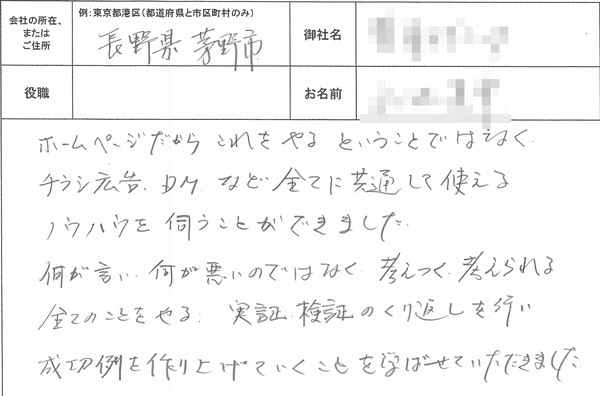 会社の所在、
または
ご住所
例:東京都港区(都道府県と市区町村のみ)
長野県 茅野市
御社名
役職
お名前
ホームページだから これをやる ということではなく、
チラシ広告、DM、など 全てに共通して使える
ノウハウを 伺うことができました。
何が言い、何が悪いのではなく、考えつく、考えられる
全てのことをやる、実証、検証のくり返しを行い
成功例を作り上げていくことを学ばせていただきました